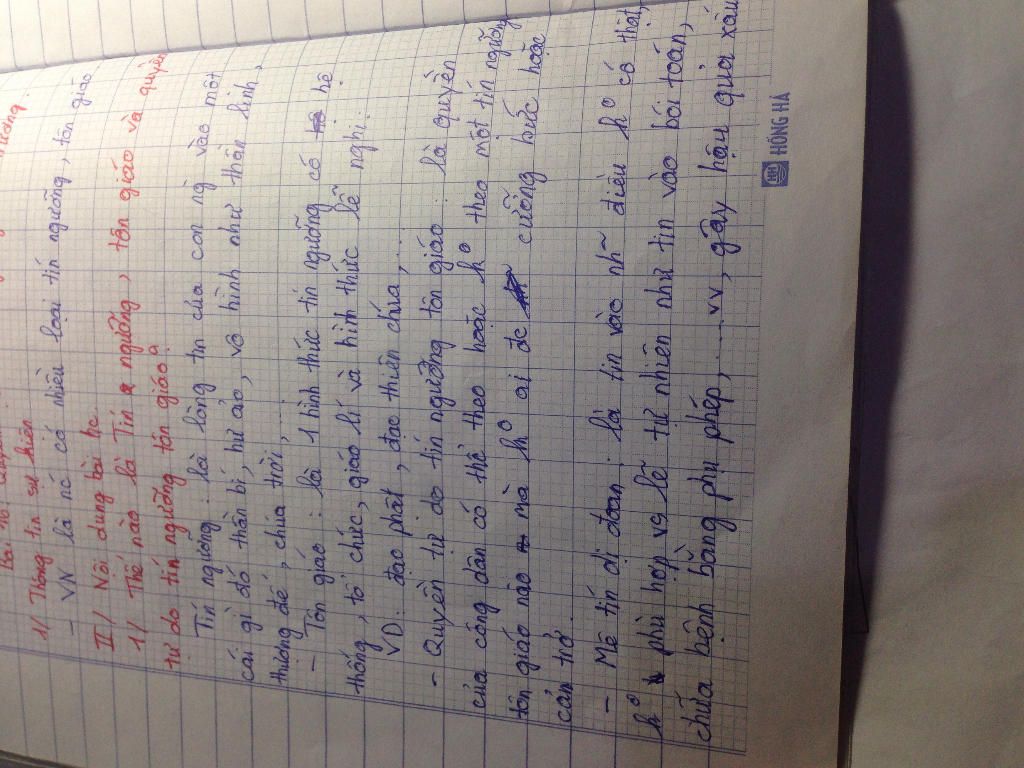 1/ Thông tin sự kiện
- VN là nc có nhiều loại tín ngưỡng, tôn giáo
II/ Nội dung bài học
1/ Thế nào là Tín ngưỡng, tôn giáo và quyền
tự do tín ngưỡng tôn giáo
Tín ngưỡng: là lòng tin của con ng vào một
cái gì đó thần bí, hư ảo, vô hình như thần linh,
thượng đế, chúa trời,...
- Tôn giáo: là 1 hình thức tín ngưỡng có hệ
thống, tổ chức, giáo lí và hình thức lễ nghi.
VD: đạo phật, đạo thiên chúa,...
- Quyền tự do tín ngưỡng tôn giáo: là quyền
của công dân có thể theo hoặc ko theo một tín ngưỡng
tôn giáo nào mà ko ai đc cưỡng bức hoặc
cản trở.
- Mê tín dị đoan: là tin vào nh~ điều ko có thật,
ko phù hợp vs lẽ tự nhiên như tin vào bói toán,
chữa bệnh bằng phù phép,.....vv, gây hậu quả xấu
HỒNG HÀ